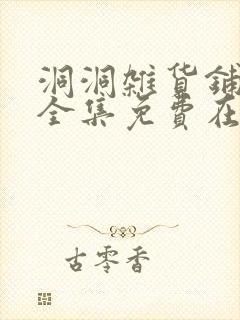 洞洞雑货鋪
全集免費在
古零香